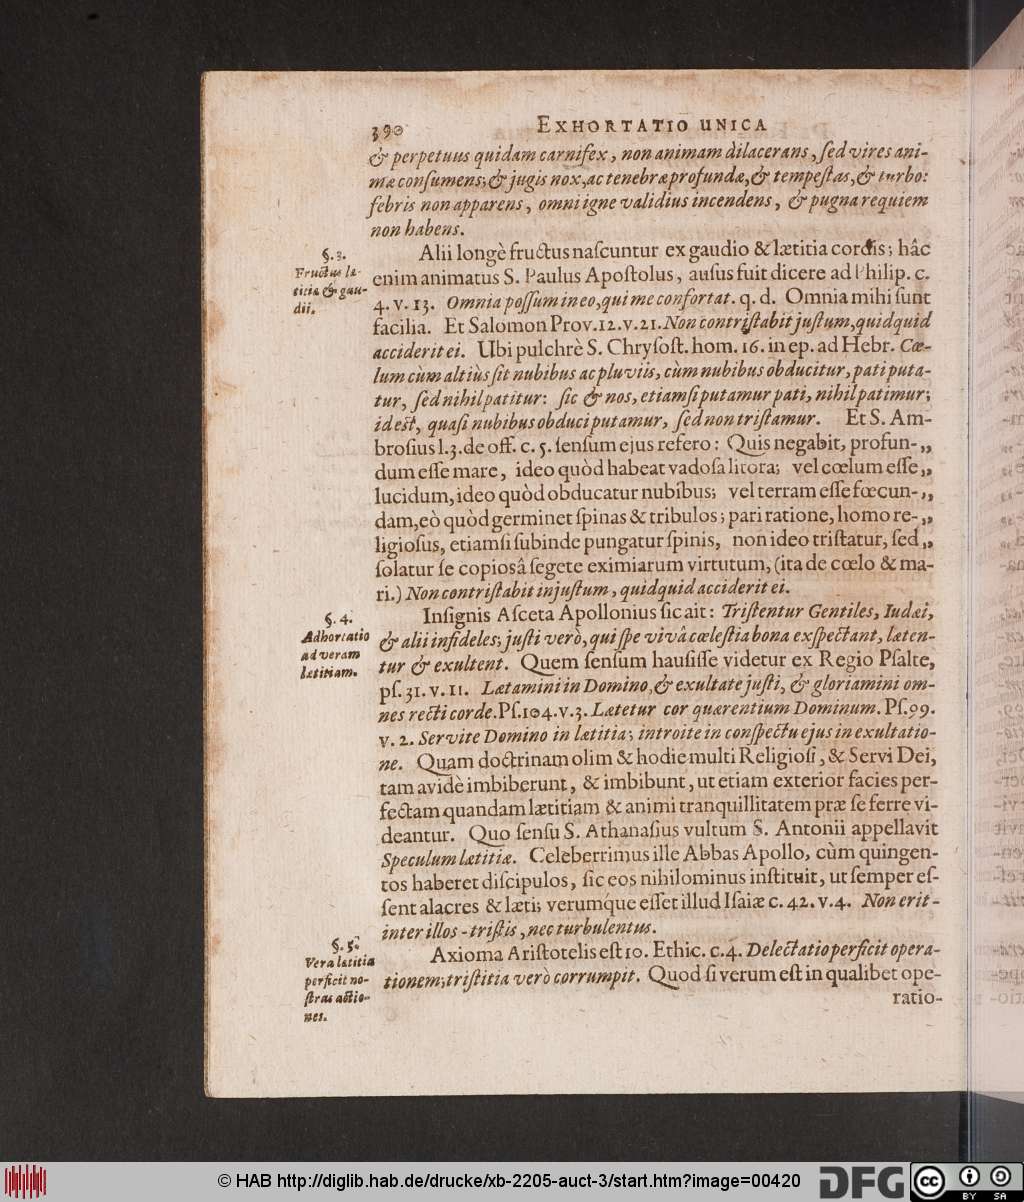 390 EXHORTATIO UNICA
& perpetuus quidam carnifex, non animam dilacerans, ſed vires ani-
mæ conſumens; & jugis nox, ac tenebræ profundæ, & tempeſtas, & turbo:
febris non apparens, omni igne validius incendens, & pugna requiem
non habens.
§. 3.
Fructus læ-
titiæ & gau-
dii.
Alii longè fructus naſcuntur ex gaudio & lætitia cordis; hâc
enim animatus S. Paulus Apoſtolus, auſus fuit dicere ad Philip. c.
4. v. 13. Omnia poſſum in eo, qui me confortat. q. d. Omnia mihi ſunt
facilia. Et Salomon Prov. 12. v. 21. Non contriſtabit juſtum, quidquid
acciderit ei. Ubi pulchrè S. Chryſoſt. hom. 16. in ep. ad Hebr. Cœ-
lum cùm altiùs ſit nubibus ac pluviis, cùm nubibus obducitur, pati puta-
tur, ſed nihil patitur: ſic & nos, etiamſi putamur pati, nihil patimur;
id eſt, quaſi nubibus obduci putamur, ſed non triſtamur. Et S. Am-
broſius l. 3. de off. c. 5. ſenſum ejus refero: Quis negabit, profun- „
dum eſſe mare, ideo quòd habeat vadoſa litora; vel cœlum eſſe „
lucidum, ideo quòd obducatur nubibus; vel terram eſſe fœcun- „
dam, eò quòd germinet ſpinas & tribulos; pari ratione, homo re- „
ligioſus, etiamſi ſubinde pungatur ſpinis, non ideo triſtatur, ſed „
ſolatur ſe copiosâ ſegete eximiarum virtutum, (ita de cœlo & ma-
ri.) Non contriſtabit injuſtum, quidquid acciderit ei.
§. 4.
Adhortatio
ad veram
lætitiam.
Inſignis Aſceta Apollonius ſic ait: Triſtentur Gentiles, Iudæi,
& alii infideles; juſti verò, qui ſpe vivâ cœleſtia bona exſpectant, læten-
tur & exultent. Quem ſenſum hauſiſſe videtur ex Regio Pſalte,
pſ. 31. v. 11. Lætamini in Domino, & exultate juſti, & gloriamini om-
nes recti corde. Pſ. 104. v. 3. Lætetur cor quærentium Dominum. Pſ. 99.
v. 2. Servite Domino in lætitia; introite in conſpectu ejus in exultatio-
ne. Quam doctrinam olim & hodie multi Religioſi, & Servi Dei,
tam avidè imbiberunt, & imbibunt, ut etiam exterior facies per-
fectam quandam lætitiam & animi tranquillitatem præ ſe ferre vi-
deantur. Quo ſenſu S. Athanaſius vultum S. Antonii appellavit
Speculum lætitiæ. Celeberrimus ille Abbas Apollo, cùm quingen-
tos haberet diſcipulos, ſic eos nihilominus inſtituit, ut ſemper eſ-
ſent alacres & læti; verumque eſſet illud Iſaiæ c. 42. v. 4. Non erit -
inter illos - triſtis, nec turbulentus.
§. 5.
Vera lætitia
perficit no-
ſtras actio-
nes.
Axioma Ariſtotelis eſt 10. Ethic. c. 4. Delectatio perficit opera-
tionem; triſtitia verò corrumpit. Quod ſi verum eſt in qualibet ope-
ratio-
© HAB http://diglib.hab.de/drucke/xb-2205-auct-3/start.htm?image=00420
DFG
cc BY SA